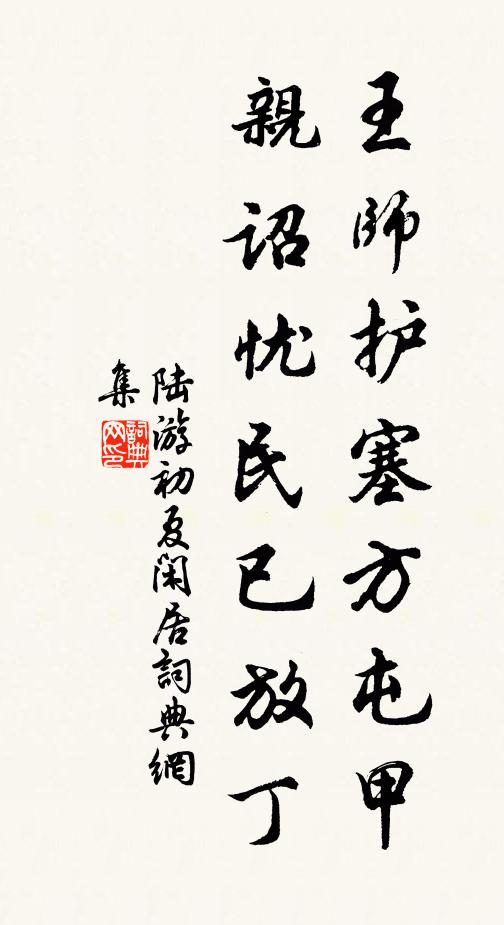 王師护塞方屯甲
親詔忧民已放丁
陆游初夏闲居詞典網
集
詞典网印